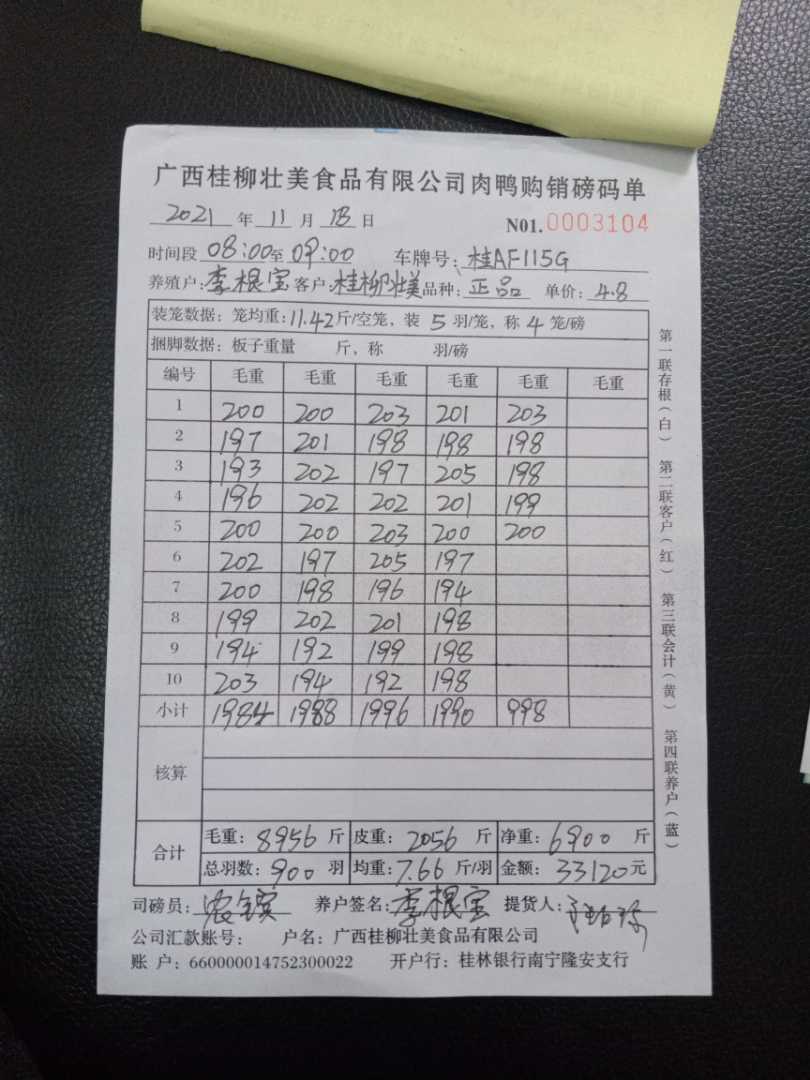 广西桂柳壮美食品有限公司肉鸭购销磅码单
2021 年 11 月 18 日 N01.0003104
时间段 08:00至 09:00 车牌号: 桂AF115G
养殖户: 李根宝 客户: 桂柳壮美 品种: 正品 单价: 4.8
装笼数据: 笼均重: 11.42斤/空笼, 装 5 羽/笼, 称 4 笼/磅
捆脚数据: 板子重量 斤, 称 羽/磅
编号 毛重 毛重 毛重 毛重 毛重 毛重
1 200 200 203 201 203
2 197 201 198 198 198
3 193 202 197 205 198
4 196 202 202 201 199
5 200 200 203 200 200
6 202 197 205 197
7 200 198 196 194
8 199 202 201 198
9 194 192 199 198
10 203 194 192 198
小计 1984 1988 1996 1990 998
核算
合计 毛重: 8956 斤 皮重: 2056 斤 净重: 6900 斤
总羽数: 900 羽 均重: 7.66 斤/羽 金额: 33120元
司磅员: 养户签名: 李根宝 提货人:
公司汇款账号: 户名: 广西桂柳壮美食品有限公司
账 户: 660000014752300022 开户行: 桂林银行南宁隆安支行
第一联存根(白) 第二联客户(红) 第三联会计(黄) 第四联养户(蓝)